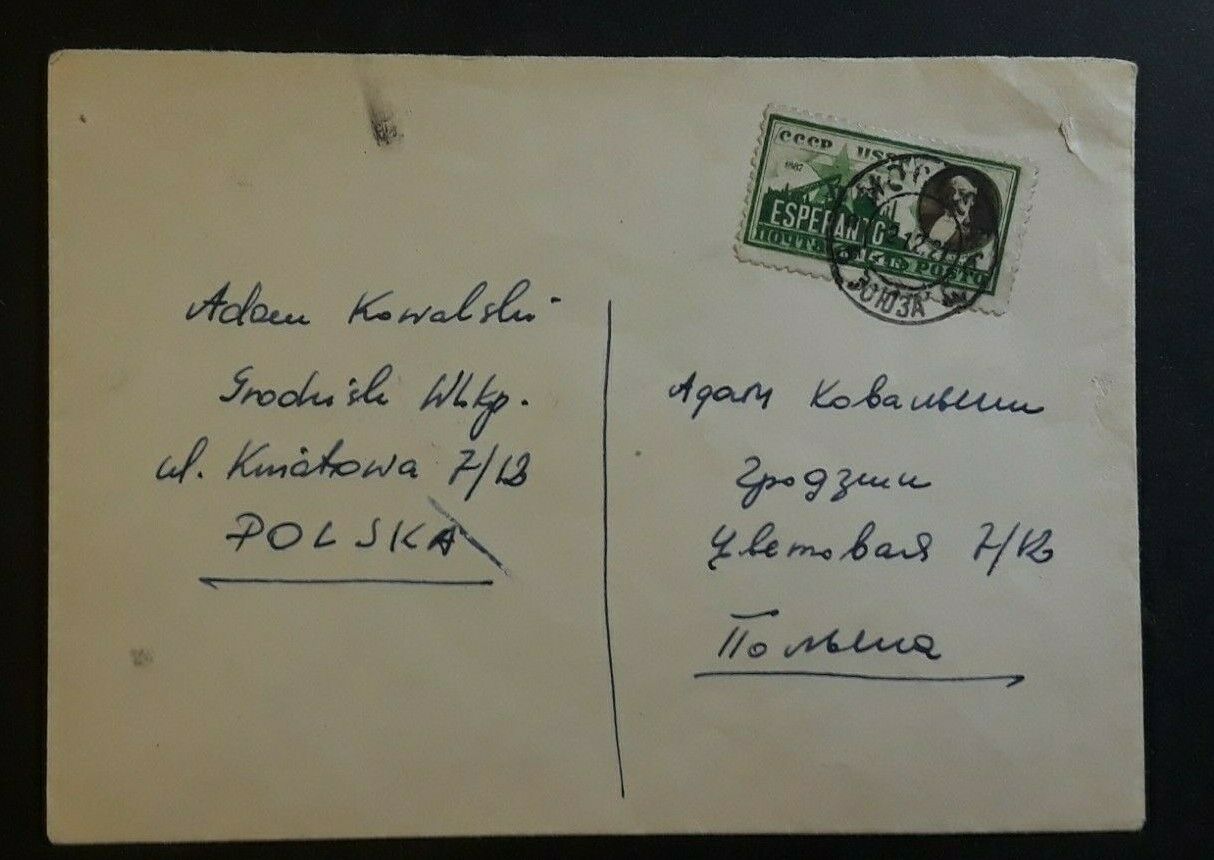 СССР USSR
1887
ESPERANTO
ПОЧТА 14 К. POŜTO
МОСКВА
Adam Kowalski
Grodzisk Wlkp.
ul. Kwiatowa 7/12
POLSKA
Адам Ковальски
Гродзиск
Цветовая 7/12
Польша